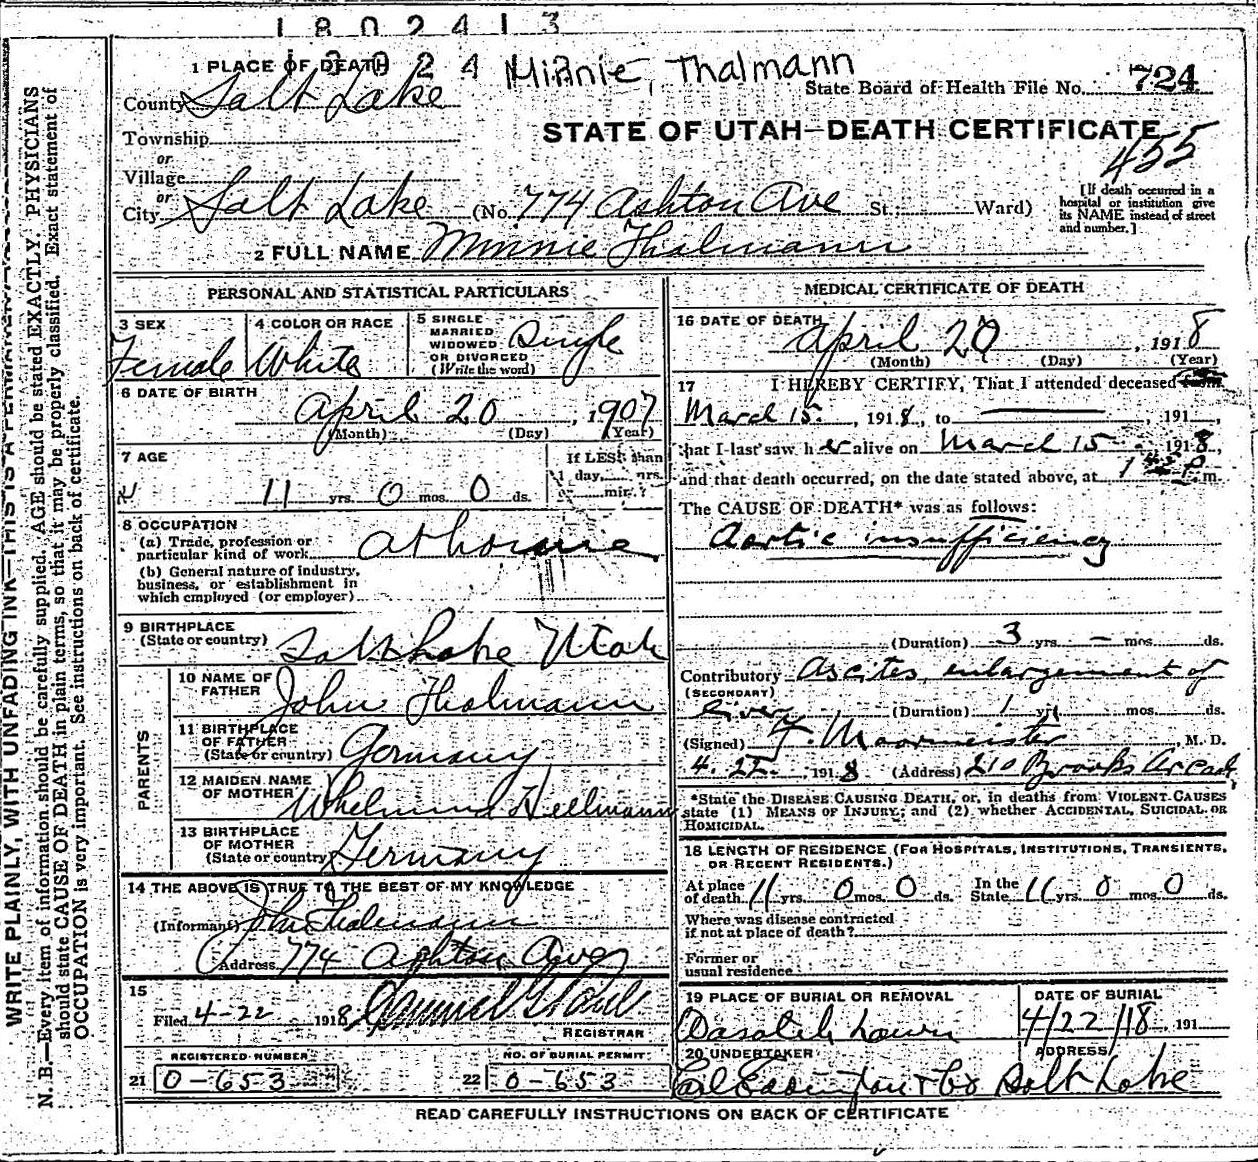 1802413
13024 Minnie, Thalmann
1 PLACE OF DEATH
County Salt Lake
State Board of Health File No. 724
Township
STATE OF UTAH—DEATH CERTIFICATE
455
or
Village
or
City Salt Lake (No. 774 Ashton Ave St.; Ward)
[If death occurred in a hospital or institution give its NAME instead of street and number.]
2 FULL NAME Minnie Thalmann
PERSONAL AND STATISTICAL PARTICULARS
3 SEX Female
4 COLOR OR RACE White
5 SINGLE MARRIED WIDOWED OR DIVORCED (Write the word) Single
6 DATE OF BIRTH
April 20, 1907
(Month) (Day) (Year)
7 AGE
If LESS than
1 day, hrs.
11 yrs. 0 mos. 0 ds. min.?
8 OCCUPATION
(a) Trade, profession or
particular kind of work at home
(b) General nature of industry,
business, or establishment in
which employed (or employer)
9 BIRTHPLACE
(State or country) Salt Lake Utah
PARENTS
10 NAME OF FATHER John Thalmann
11 BIRTHPLACE OF FATHER (State or country) Germany
12 MAIDEN NAME OF MOTHER Hellmann
13 BIRTHPLACE OF MOTHER (State or country) Germany
14 THE ABOVE IS TRUE TO THE BEST OF MY KNOWLEDGE
(Informant) John Thalmann
Address 774 Ashton Ave
15
Filed 4-22 1918
REGISTRAR
REGISTERED NUMBER
21 0-653
NO. OF BURIAL PERMIT
22 0-653
MEDICAL CERTIFICATE OF DEATH
16 DATE OF DEATH
April 20, 1918
(Month) (Day) (Year)
17 I HEREBY CERTIFY, That I attended deceased from
March 15, 1918, to 191
that I last saw her alive on March 15, 1918,
and that death occurred, on the date stated above, at 1 P m.
The CAUSE OF DEATH* was as follows:
Aortic insufficiency
(Duration) 3 yrs. – mos. ds.
Contributory Ascites, enlargement of
(SECONDARY)
liver (Duration) 1 yr. mos. ds.
(Signed) F. Moormeister M. D.
4. 22. 1918 (Address) 210 Brooks Arcade
*State the DISEASE CAUSING DEATH, or, in deaths from VIOLENT CAUSES
state (1) MEANS OF INJURY; and (2) whether ACCIDENTAL, SUICIDAL, OR
HOMICIDAL.
18 LENGTH OF RESIDENCE (FOR HOSPITALS, INSTITUTIONS, TRANSIENTS,
OR RECENT RESIDENTS.)
At place of death 11 yrs. 0 mos. 0 ds. In the State 11 yrs. 0 mos. 0 ds.
Where was disease contracted
if not at place of death?
Former or
usual residence
19 PLACE OF BURIAL OR REMOVAL
Wasatch Lawn
DATE OF BURIAL
4/22/18, 191
20 UNDERTAKER
& Co
ADDRESS
Salt Lake
READ CAREFULLY INSTRUCTIONS ON BACK OF CERTIFICATE
WRITE PLAINLY, WITH UNFADING INK—THIS IS A PERMANENT
N. B.—Every item of information should be carefully supplied. AGE should be stated EXACTLY. PHYSICIANS
should state CAUSE OF DEATH in plain terms, so that it may be properly classified. Exact statement of
OCCUPATION is very important. See instructions on back of certificate.